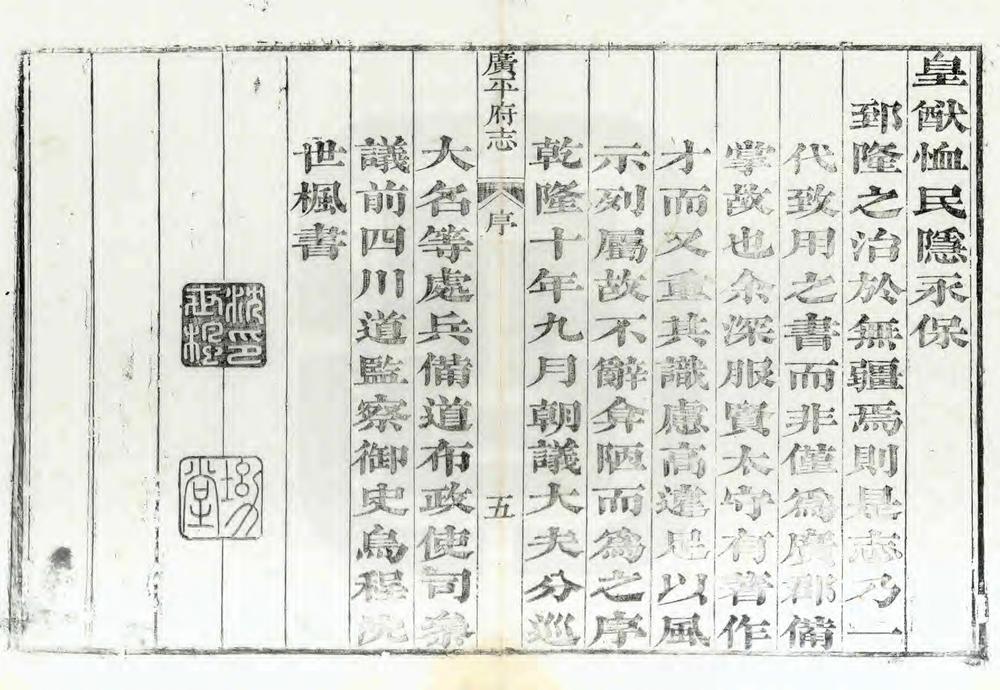 皇猷恤民隱永保
郅隆之治於無疆焉則是志乃一
代致用之書而非僅為廣郡備
掌故也余深服賓太守有著作
才而又重其識慮高遠足以風
示列屬故不辭弇陋而為之序
乾隆十年九月朝議大夫分巡
廣平府志
序
五
大名等處兵備道布政使司叅
議前四川道監察御史烏程沈
世楓書
沈印世楓
堂